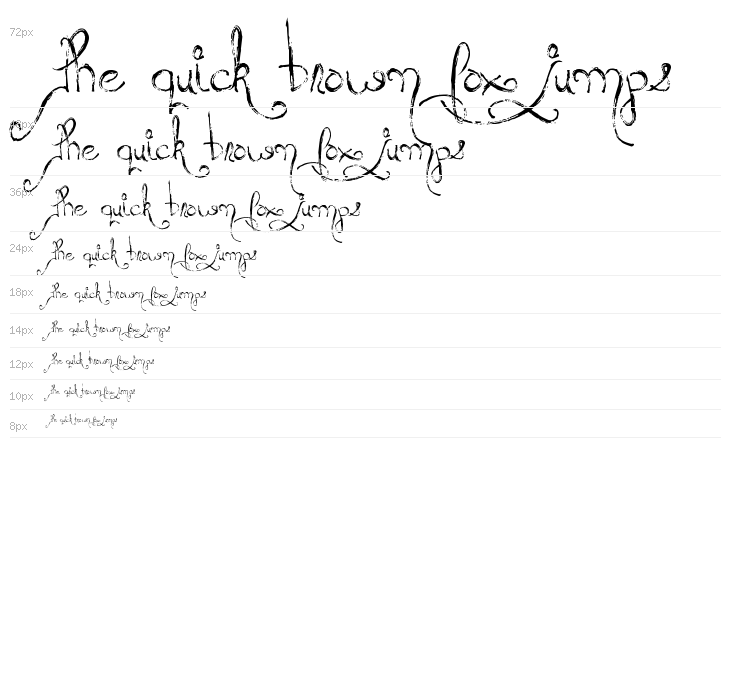 72px the quick brown fox jumps
the quick brown fox jumps
36px the quick brown fox jumps
24px the quick brown fox jumps
18px the quick brown fox jumps
14px the quick brown fox jumps
12px the quick brown fox jumps
10px the quick brown fox jumps
8px the quick brown fox jumps